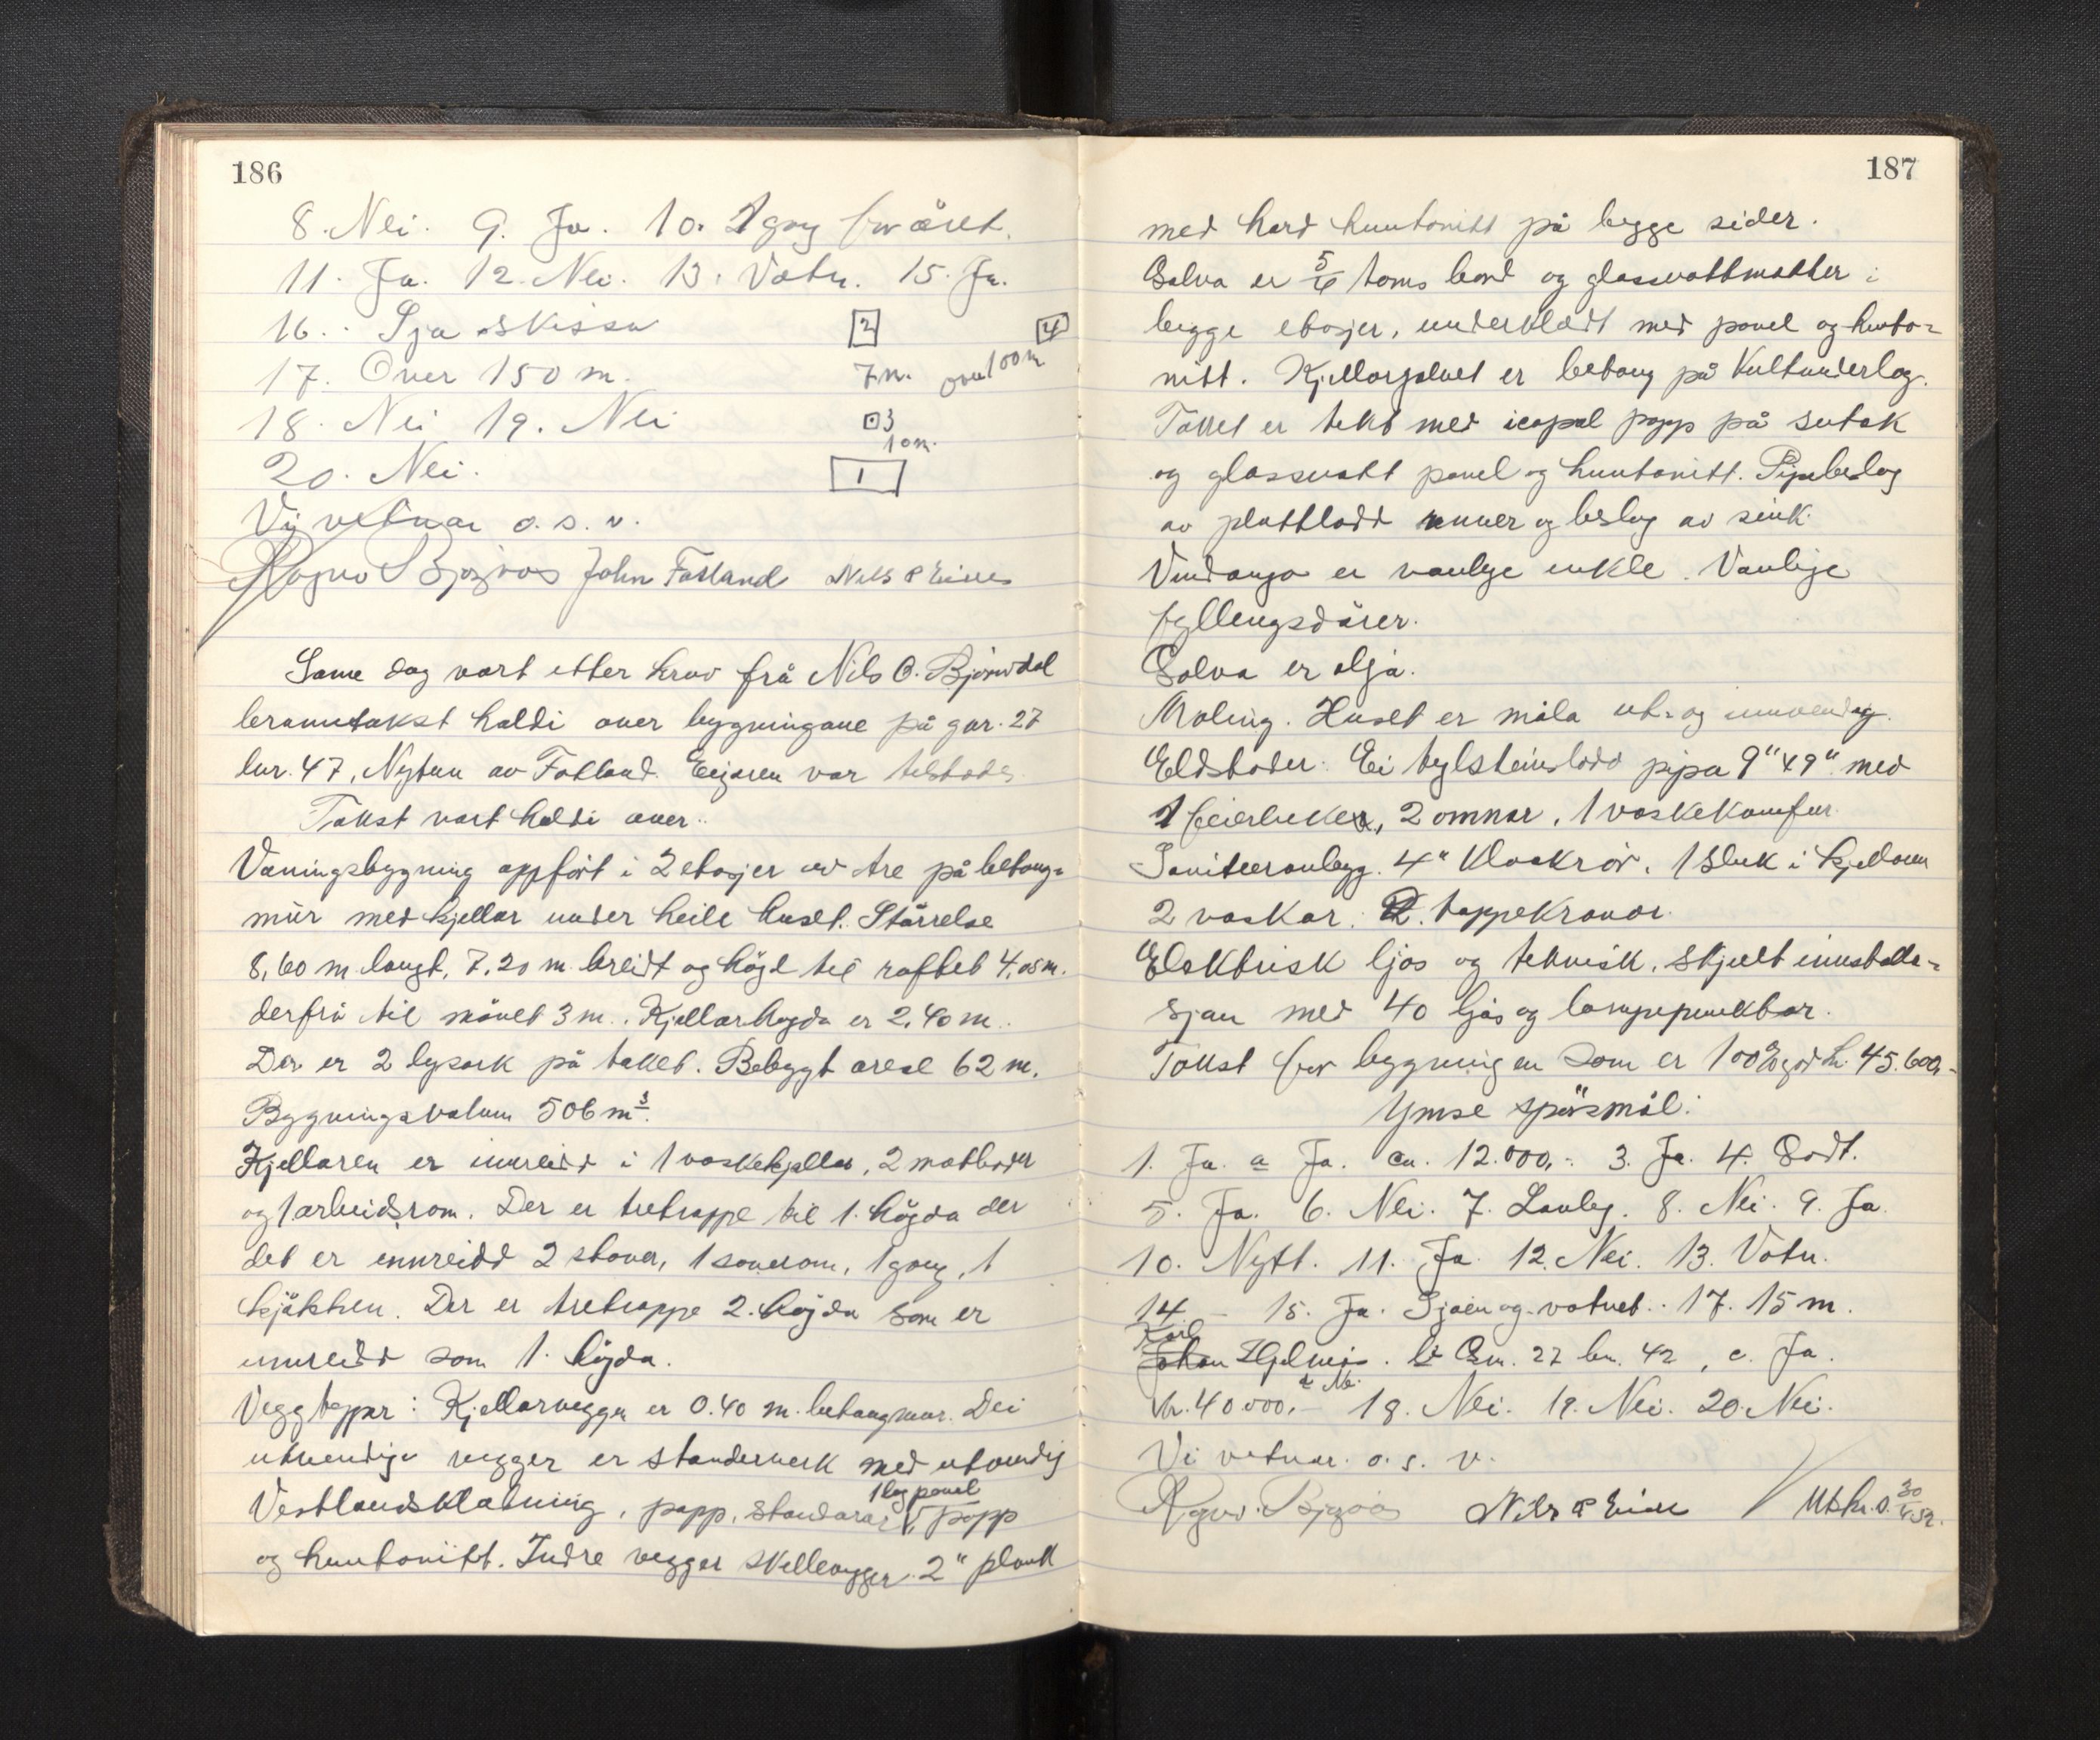 186
8. Nei. 9. Ja. 10. 1 gang for året.
11. Ja. 12. Nei. 13. Vatn. 15. Ja.
16. Sjå skissa 2 4
17. Over 150 m. 7 m. over 100 m
18. Nei 19. Nei 3
10 m.
20. Nei. 1
Vi vetnar o. s. v.
John Fotland Nils P Eide
Same dag vart etter krav frå Nils O. Bjørndal
branntakst haldi over bygningane på gar. 27
bnr. 47, Nytun av Fotland. Eigaren var tilstades.
Takst vart haldi over:
Våningsbygning oppført i 2 etasjer av tre på betong=
mur med kjellar under heile huset. Størrelse
8,60 m langt, 7,20 m breidt og høgd til raftet 4,05 m.
derfrå til mønet 3 m. Kjellarhøgda er 2,40 m.
Der er 2 lysark på taket. Bebygt areal 62 m.
Bygningsvolum 506 m³.
Kjellaren er innreidd i 1 vaskekjellar, 2 matboder
og 1 arbeidsrom. Der er tretrappe til 1. høgda der
det er innreidd 2 stover, 1 soverom, 1 gang, 1
kjøkken. Der er tretrappe 2. høgda som er
innreidd som 1. høgda.
Veggtyper: Kjellarveggen er 0.40 m. betongmur. Dei
utvendige vegger er standerverk med utvendig
1 lag panel
Vestlandsklædning, papp, standarar, V papp
og huntonitt. Indre vegger skillevegger 2" plank
187
med hard huntonitt på begge sider.
Golva er 5/4 toms bord og glassvattmatter i
begge etasjer, underklædt med panel og hunto=
nitt. Kjellargolvet er betong på Kultunderlag.
Taket er tekt med icopal papp på sutak
og glassvatt panel og huntonitt. Pipebeslag
av plattladd renner og beslag av sink.
Vindauga er vanlige enkle. Vanlige
fyllingsdører.
Golva er olja.
Maling. Huset er måla ut- og innvendig.
Eldstader: Ei teglsteinsladd pipa 9" x 9" med
1 feierluker, 2 omnar, 1 vaskekomfur.
Sanitæranlegg. 4" Kloakrør. 1 Sluk i kjellaren
2 vaskar. 2. tappekranar.
Elektrisk ljos og teknisk. Skjult innstalla=
sjon med 40 ljos og lampepunktar.
Takst for bygningen som er 100% god kr. 45.600,-
Ymse spörsmål:
1. Ja. a Ja. ca. 12.000,- 3. Ja. 4. Godt.
5. Ja. 6. Nei. 7. Lovleg. 8. Nei. 9. Ja.
10. Nytt. 11. Ja. 12. Nei. 13. Vatn.
14. - 15. Ja. Sjøen og vatnet. 17. 15 m.
Karl
Johan b Gn. 27 bn. 42, c. Ja.
d Nei.
kr. 40000,- 18. Nei. 19. Nei. 20. Nei.
Vi vetnar. o. s. v.
Nils P Eide Utskr. d. 30/4-52.